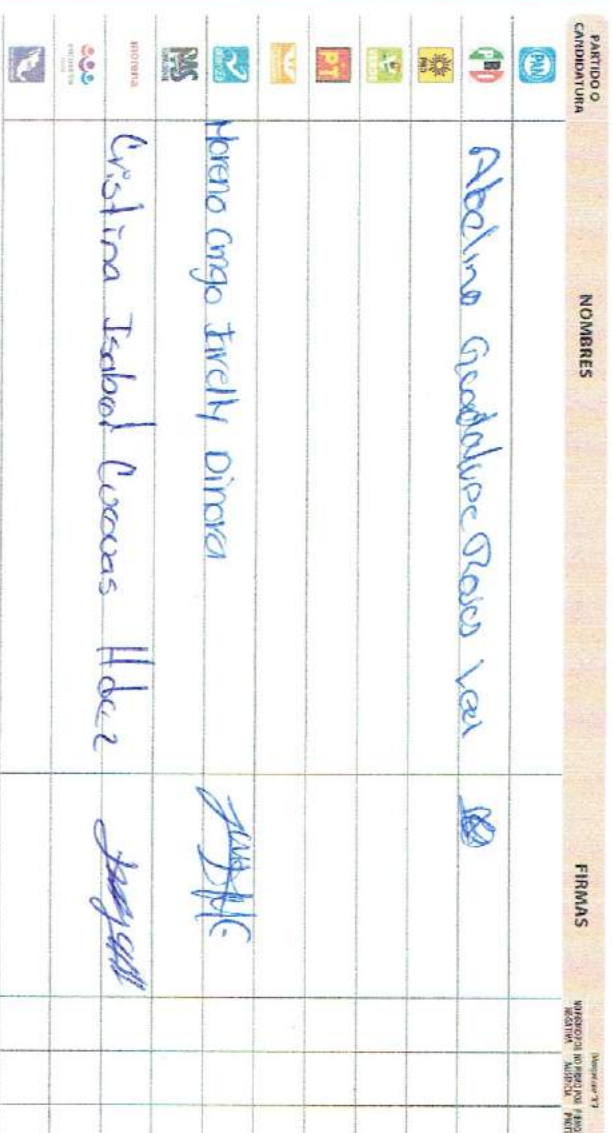 PARTIDO O
CANDIDATURA
NOMBRES
FIRMAS
PAN
PRI
Abelino Guadalupe Rosas Leal
PRD
VERDE
PT
alianza
Moreno Cmgo Irelly Dinora
PAS
morena
Cristina Isabel Cuevas Hdez
encuentro